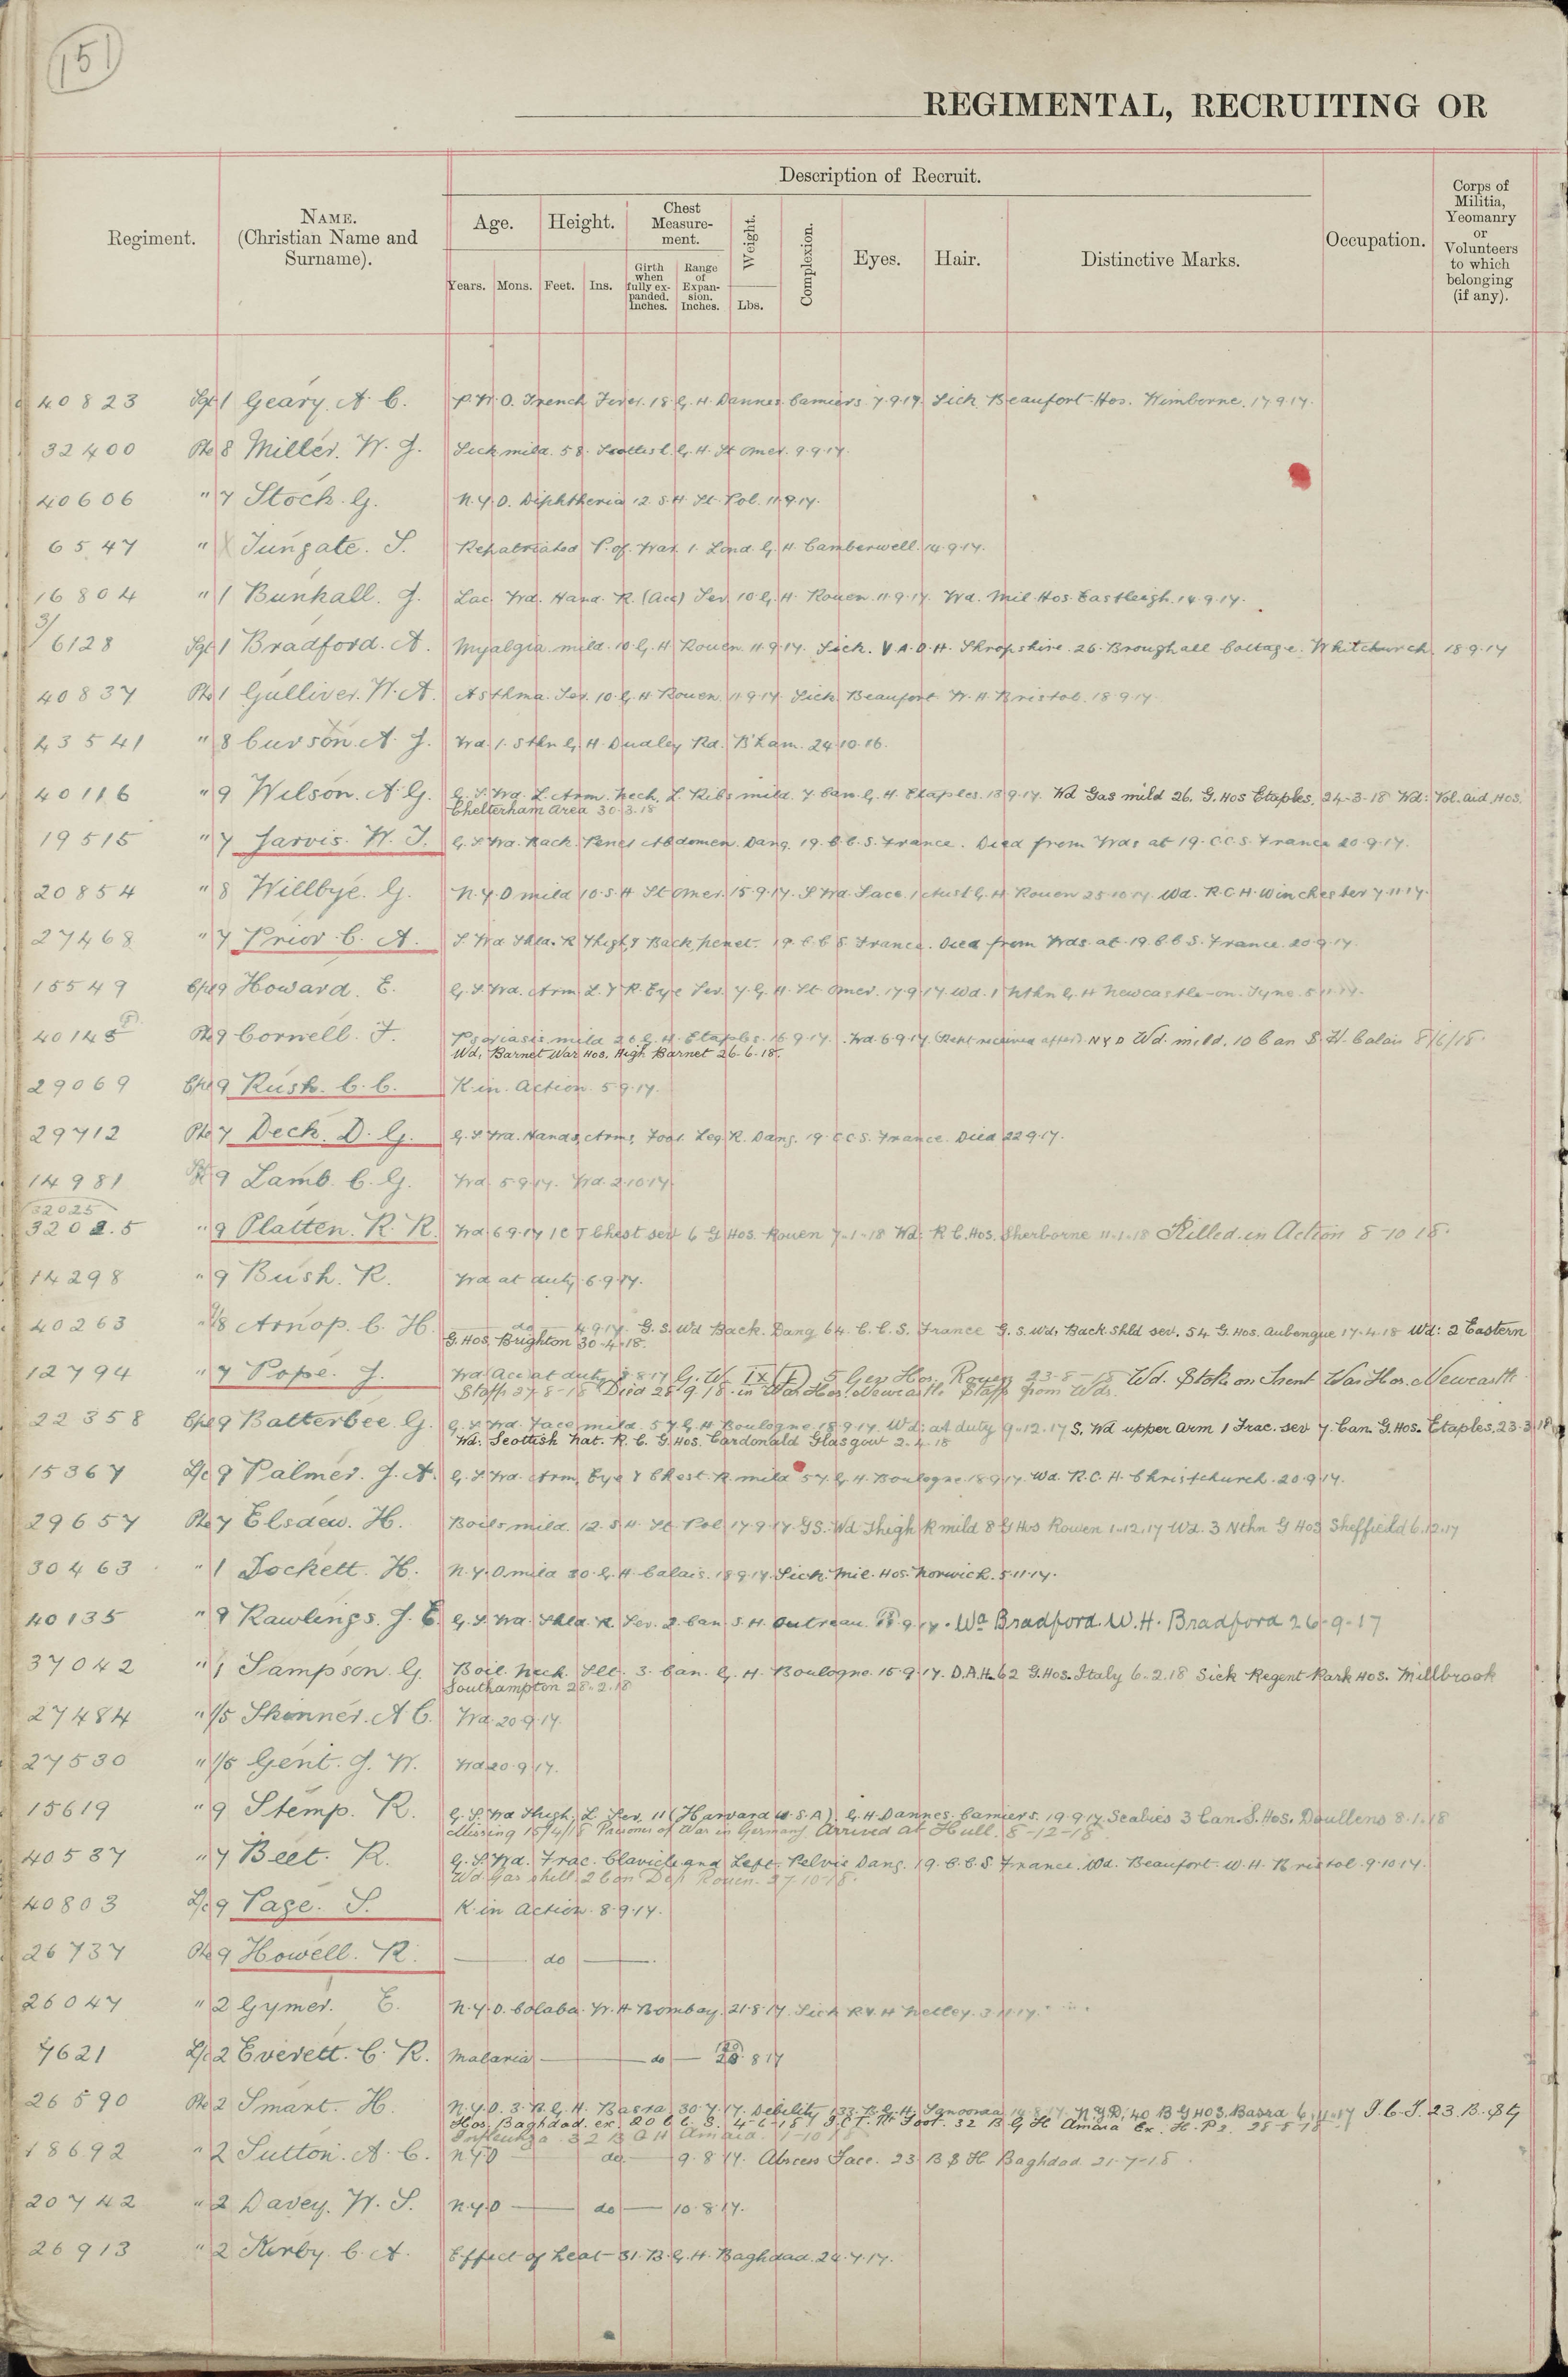 151
REGIMENTAL, RECRUITING OR
Regiment.
NAME.
(Christian Name and
Surname).
Description of Recruit.
Age.
Height.
Chest
Measure-
ment.
Weight.
Complexion.
Eyes.
Hair.
Distinctive Marks.
Occupation.
Corps of
Militia,
Yeomanry
or
Volunteers
to which
belonging
(if any).
Years.
Mons.
Feet.
Ins.
Girth
when
fully ex-
panded.
Inches.
Range
of
Expan-
sion.
Inches.
Lbs.
40823 Sgt 1 Geary. A. C. P.U.O. Trench Fever. 18. G. H. Dannes Camiers 7.9.17. Sick Beaufort Hos. Wimborne. 17.9.17.
32400 Pte 8 Miller. W. J. Sick mild. 58. Scottish. G. H. St Omer. 9.9.17.
40606 " 7 Stock. G. N.Y.D. Diphtheria 12. S.H. St. Pol. 11.9.17.
6547 " Tungate. S. Repatriated P. of War. 1. Lond. G. H. Camberwell. 14.9.17.
16804 " 1 Bunkall. J. Lac. Wd. Hand. R. (Acc) Sev. 10. G. H. Rouen. 11.9.17. Wd. Mil. Hos. Eastleigh. 14.9.17.
3/6128 Sgt 1 Bradford. A. Myalgia. mild. 10. G. H. Rouen. 11.9.17. Sick. V.A.D.H. Shropshire. 26. Broughall Cottage. Whitchurch. 18.9.17
40837 Pte 1 Gulliver. W. A. Asthma. Sev. 10. G. H. Rouen. 11.9.17. Sick. Beaufort W. H. Bristol. 18.9.17.
43541 " 8 Curson. A. J. Wd. 1. Sthn G. H. Dudley Rd. B'ham. 24.10.16.
40116 " 9 Wilson. A. G. G. S. Wd. L. Arm. Neck. L. Ribs mild. 7 Can. G. H. Etaples. 13.9.17. Wd Gas mild 26. G. Hos Etaples. 24-3-18 Wd: Vol. Aid. Hos.
Cheltenham Area 30.3.18
19515 " 7 Jarvis. W. J. G. S. Wd. Back. Penet Abdomen. Dang. 19. C.C.S. France. Died from Wds at 19. C.C.S. France 20.9.17.
20854 " 8 Willbye. G. N.Y.D mild 10. S. H St Omer. 15.9.17. S Wd. Face. 1 Aust G. H Rouen 25.10.17. Wd. R.C.H. Winchester 7.11.17.
27468 " 7 Prior. C. A. S Wd Shld. R Thigh, & Back, penet. 19. C.C.S France. Died from Wds. at 19. C.C.S. France. 20.9.17.
15549 Cpl 9 Howard. E. G. S Wd. Arm L. & R. Eye Sev. 7. G. H. St Omer. 17.9.17. Wd. 1 Nthn G. H Newcastle-on-Tyne. 5.11.17.
40145 Pte 9 Cornell. F. Psoriasis mild 26 G. H. Etaples. 16.9.17. Wd. 6.9.17 (Rept received after) NYD Wd. mild. 10 Can S. H. Calais 8/6/18.
Wd, Barnet War Hos. High Barnet 26.6.18.
29069 Cpl 9 Rush. C. C. K. in. Action. 5.9.17.
29712 Pte 7 Deck. D. G. G. S Wd. Hands, Arms, Foot. Leg. R. Dang. 19. C.C.S. France. Died 22.9.17.
14981 9 Lamb. C. G. Wd. 5.9.17. Wd. 2.10.17.
32025
32025 " 9 Platten. R. R. Wd. 6.9.17 I C T Chest sev 6 G Hos. Rouen 7-1-18 Wd: R.C. Hos. Sherborne 11-1-18 Killed in Action 8-10-18.
14298 " 9 Bush. R. Wd at duty. 6.9.17.
40263 " 1/8 Arnop. C. H. do 4.9.17. G. S. Wd Back. Dang 64. C.C.S. France G. S. Wd. Back. Shld sev. 54 G. Hos. Aubengue 17-4-18 Wd: 2 Eastern
G. Hos. Brighton 30-4-18.
12794 " 7 Pope. J. Wd Acc at duty. 8.8.17 G. W. IX (I) 5 Gen Hos. Rouen 23-8-18 Wd. Stoke on Trent War Hos. Newcastle
Staffs 27-8-18 Died 28.9.18 in War Hos. Newcastle Staffs from Wds.
22358 Cpl 9 Batterbee G. G. S. Wd. Face mild 57 G. H. Boulogne. 18.9.17. Wd: at duty 9-12-17 S. Wd upper Arm l Frac. sev 7 Can. G. Hos. Etaples. 23.3.18
Wd: Scottish Nat. R. C. G. Hos. Cardonald Glasgow 2-4-18
15367 L/c 9 Palmer. J. A. G. S. Wd. Arm, Eye & Chest. R. mild 57. G. H. Boulogne. 18.9.17. Wd. R.C. H. Christchurch. 20.9.17.
29657 Pte 7 Elsdew. H. Boils mild. 12. S H. St. Pol 17.9.17. G S. Wd Thigh R mild 8 G Hos Rouen 1.12.17 Wd. 3 Nthn G Hos Sheffield 6.12.17
30463 " 1 Dockett. H. N.Y.D mild 30. G. H. Calais. 18.9.17. Sick. Mil. Hos. Norwich. 5.11.17.
40135 " 9 Rawlings. J. E. G. S. Wd. Shld. R. Sev. 2. Can. S. H. Outreau. 9.17. Wd Bradford. W. H. Bradford 26-9-17
37042 " 1 Sampson. G. Boil. Neck. Slt. 3. Can. G. H. Boulogne. 15.9.17. D.A.H. 62 G. Hos. Italy 6-2.18 Sick Regent Park Hos. Millbrook
Southampton 28.2.18
27484 " 1/5 Skinner. A. C. Wd. 20.9.17.
27530 " 1/5 Gent. J. W. Wd 20.9.17.
15619 " 9 Stemp. R. G. S. Wd Thigh. L. Sev. 11 (Harvard U.S.A). G. H. Dannes. Camiers. 19.9.17 Scabies 3 Can. S. Hos. Doullens 8.1.18
Missing 15/4/18 Prisoner of War in Germany Arrived at Hull. 8-12-18
40537 " 7 Beet. R. G. S. Wd. Frac. Clavicle and Left. Pelvis Dang. 19. C.C.S France. Wd. Beaufort. W. H. Bristol. 9.10.17.
Wd. Gas shell. 2 Con Dep Rouen. 27.10.18.
40803 L/c 9 Page. S. K. in Action. 8.9.17.
26737 Pte 9 Howell. R. do
26047 " 2 Gymer. E. N.Y.D. Colaba. W. H Bombay. 21.8.17. Sick R.V.H Netley. 3.11.17.
7621 L/c 2 Everett. C. R. Malaria do 20.8.17
26590 Pte 2 Smart. H. N.Y.D. 3. B. G. H. Basra 30.7.17. Debility 133. B. G. H. 14.8.17. N.Y.D. 40 B G Hos. Basra 6.11.17 I.C.T. 23. B. Sty
Hos. Baghdad. ex. 20 C.C.S. 4-6-18 I.C.T. Rt Foot. 32 B G H Amara Ex. H. P 2. 28-8-18
Influenza 32 B G H Amara. 1-10-18
18692 " 2 Sutton. A. C. N Y D do 9.8.17. Abscess Face. 23 B S H Baghdad 21-7-18.
20742 " 2 Davey. W. S. N.Y.D do 10.8.17.
26913 " 2 Kirby. C. A. Effect of heat 31. B. G. H. Baghdad. 24.7.17.